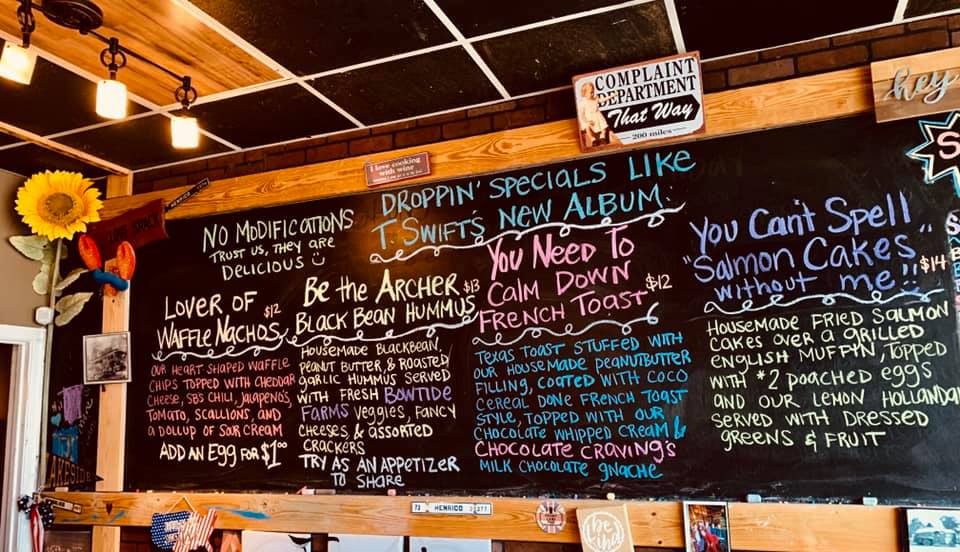 COMPLAINT
DEPARTMENT
That Way
200 miles
hey
I love cooking
with wine
HENRICO
DROPPIN' SPECIALS LIKE
T. SWIFT'S NEW ALBUM:
NO MODIFICATIONS
TRUST US, THEY ARE
DELICIOUS
LOVER OF $12
WAFFLE NACHOS
OUR HEART SHAPED WAFFLE
CHIPS TOPPED WITH CHEDDAR
CHEESE, SBS CHILI, JALAPENO'S,
TOMATO, SCALLIONS, AND
A DOLLUP OF SOUR CREAM
ADD AN EGG FOR $1.00
Be the ARCHER $13
BLACK BEAN HUMMUS
HOUSEMADE BLACKBEAN,
PEANUT BUTTER, & ROASTED
GARLIC HUMMUS SERVED
WITH FRESH BOWTIDE
FARMS VEGGIES, FANCY
CHEESES, & ASSORTED
CRACKERS
TRY AS AN APPETIZER
TO SHARE
YOU NEED TO
CALM DOWN $12
FRENCH TOAST
TEXAS TOAST STUFFED WITH
OUR HOUSEMADE PEANUTBUTTER
FILLING, COATED WITH COCO
CEREAL DONE FRENCH TOAST
STYLE, TOPPED WITH OUR
CHOCOLATE WHIPPED CREAM &
CHOCOLATE CRAVING'S
MILK CHOCOLATE GNACHE
You Can't Spell
"Salmon Cakes" $14
without me!!
HOUSEMADE FRIED SALMON
CAKES OVER A GRILLED
ENGLISH MUFFYN, TOPPED
WITH *2 POACHED EGGS
AND OUR LEMON HOLLANDA
SERVED WITH DRESSED
GREENS & FRUIT
LAKESIDE
73 HENRICO D 277
be
kind